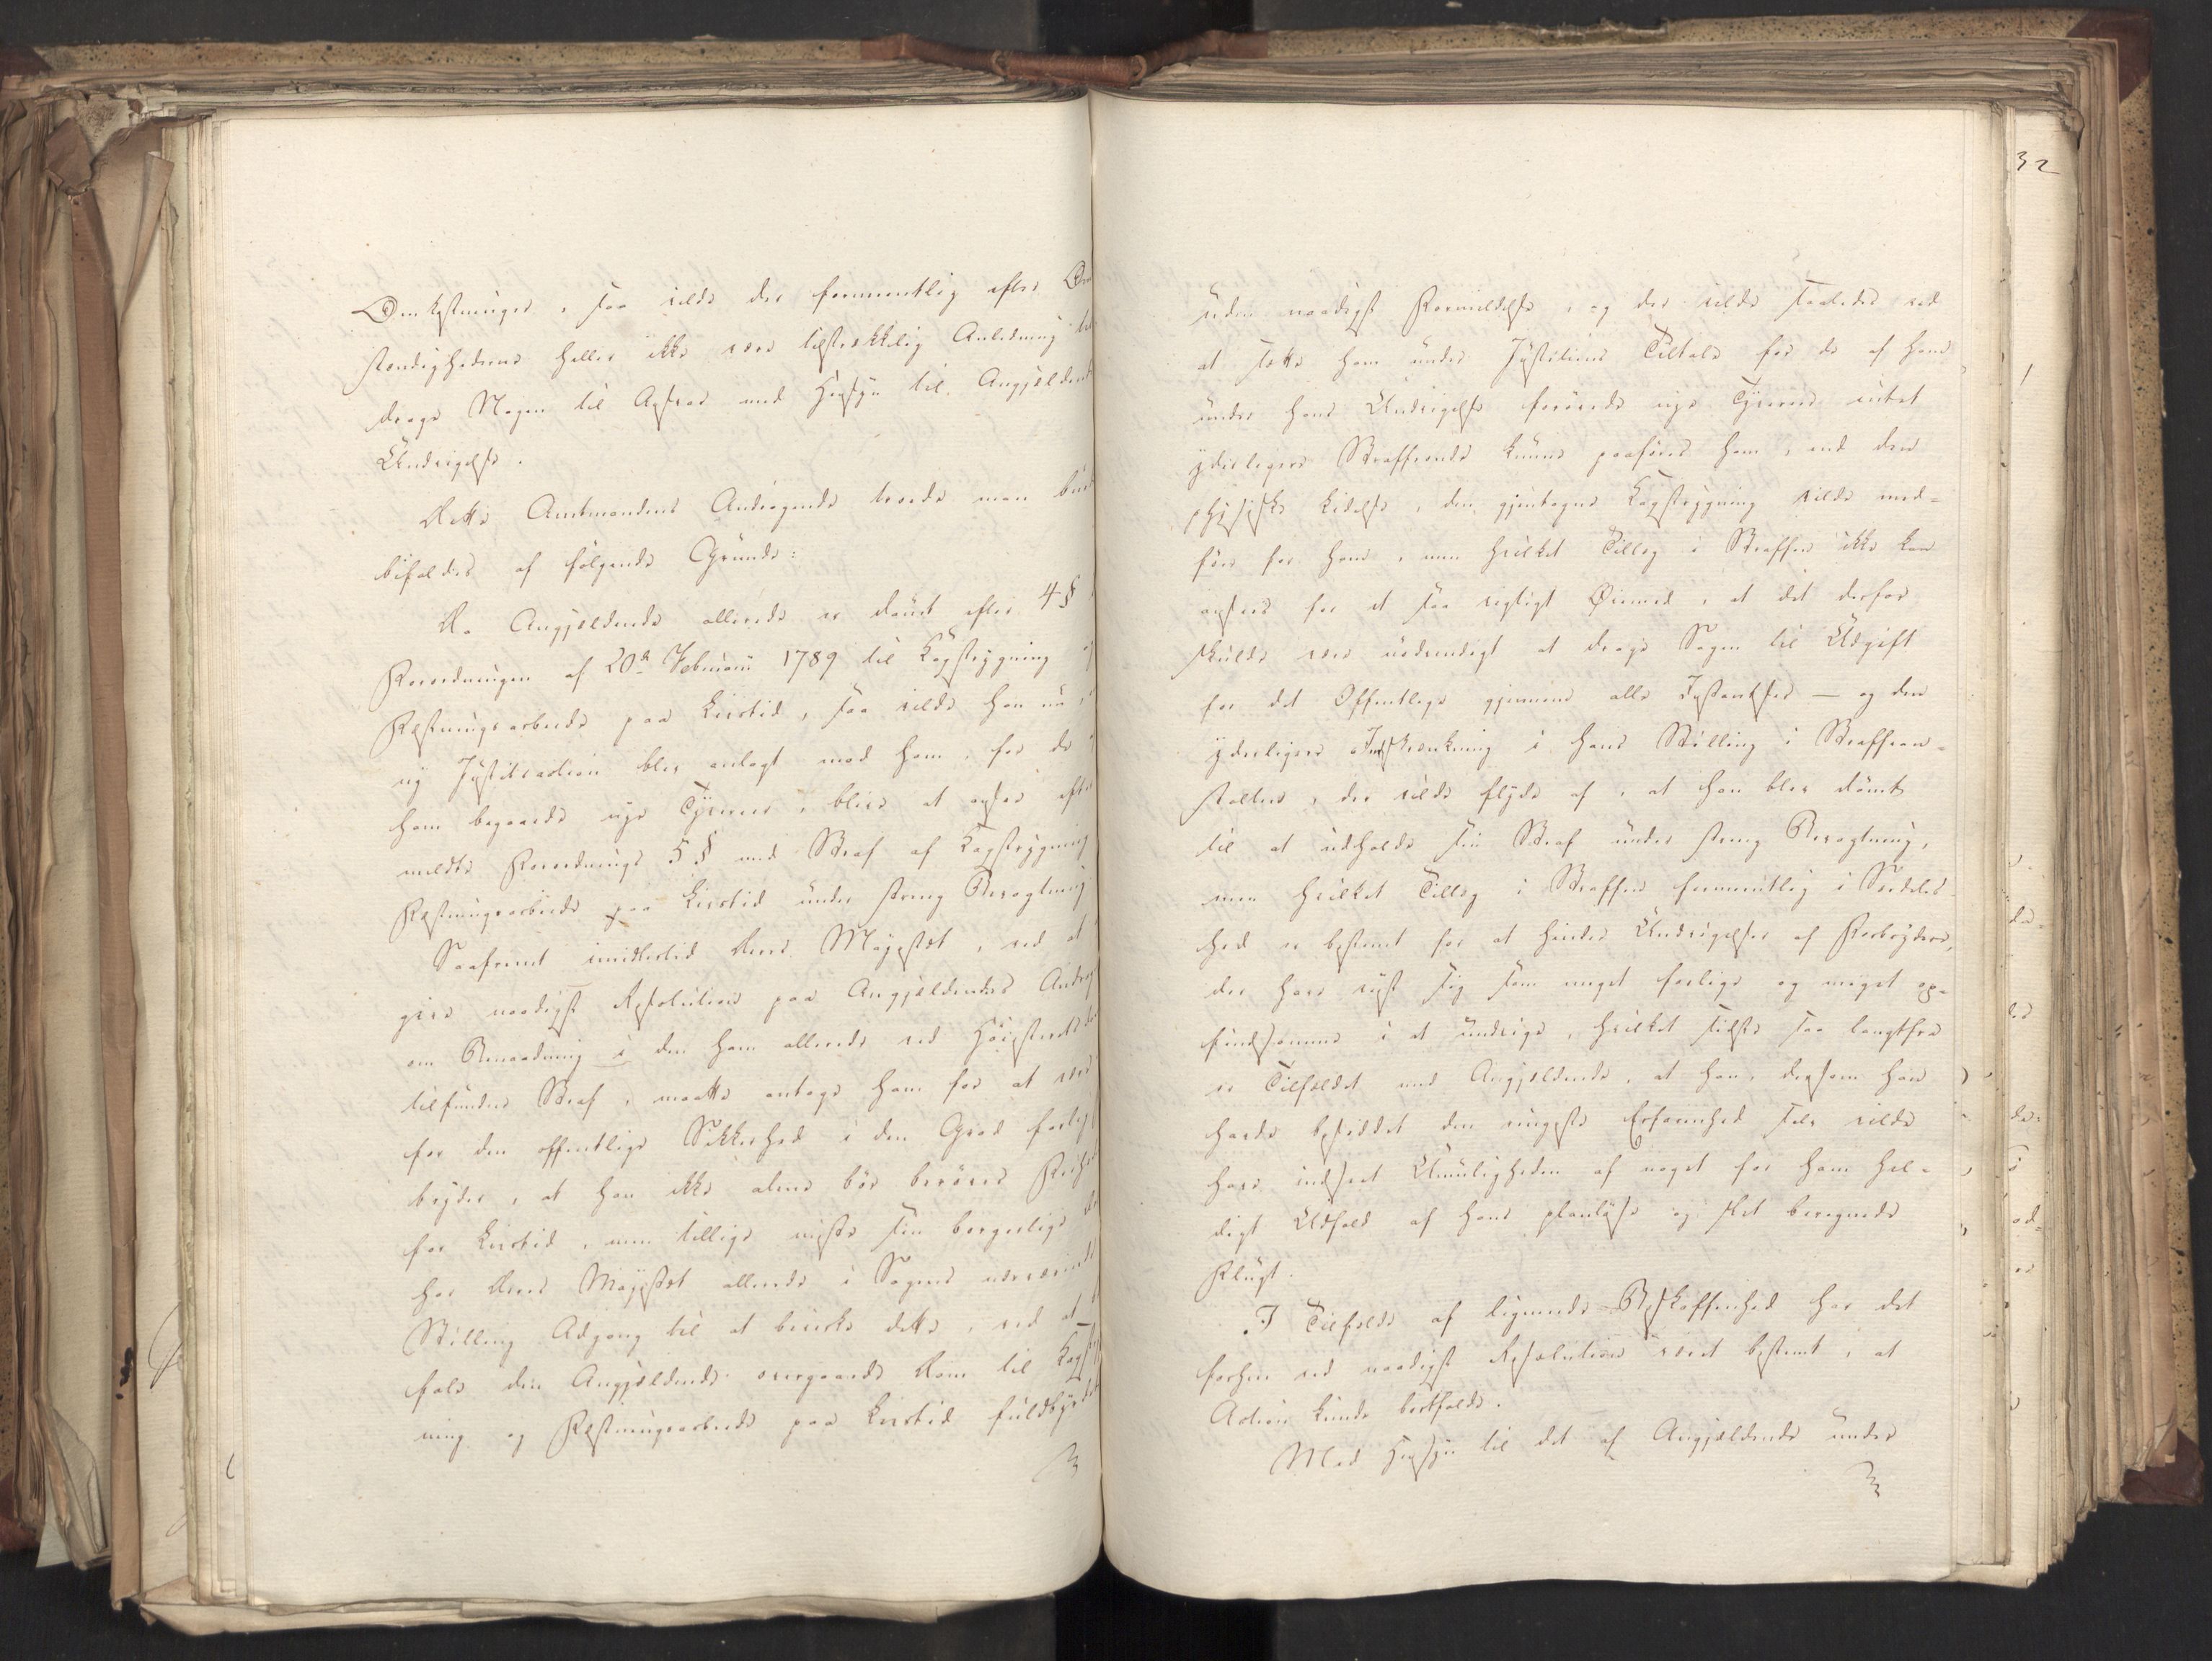 Omkostninger, saa vilde der formeentlig efter Om
stændighederne heller ikke være tilstrækkelig Anledning til
drage Nogen til Ansvar med Hensyn til Angjældende
Undvigelse.
Dette Amtmandens Andragende troede man bur
bifaldes af følgende Grunde:
Da Angjældende allerede er dömt efter 4 §
Forordningen af 20de Februarii 1789 til Kagstrygning og
Fæstningsarbeide paa Livstid, saa vilde han nu,
ny Justitsaction blev anlagt mod ham, for de af
ham begaaede nye Tyverier, blive at ansee efter
meldte Forordnings 5 § med Straf af Kagstrygning
Fæstningsarbeide paa Livstid under streng Bevogtning
Saafremt imidlertid Deres Majestæt, ved at
give naadigst Resolution paa Angjældendes Andrag
om Benaadning i den ham allerede ved Höiesterets
tilfundne Straf, maatte antage ham for at være
for den offentlige Sikkerhed i den Grad farlig
bryder, at han ikke alene bör beröves Frihed
for Livstid, men tillige miste sin borgerlige
har Deres Majestæt allerede i Sagens nærværende
Stilling Adgang til at bevirke dette, ved at
fale den Angjældende overgaaede Dom til Kagstryg
ning og Fæstningsarbeide paa Livstid fuldbyrdet
uden naadigst Formildelse, og der vilde saaledes ved
at sætte ham under Justitiens Tiltale for de af ham
under hans Undvigelse forövede nye Tyverier intet
yderligere Straffeonde kunne paaföres ham, end den
physiske Lidelse, den gjentagne Kagstrygning vilde med-
före for ham, men hvilket Tillæg i Straffen ikke kan
ansees for et saa vigtigt Öiemed, at det derfor
skulde være nödvendigt at drage Sagen til Udgift
for det Offentlige gjennem alle Instantser — og den
yderligere Indskrænkning i hans Stilling i Straffean-
stalten, der vilde flyde af, at han blev dömt
til at udholde sin Straf under streng Bevogtning,
men hvilket Tillæg i Straffen formeentlig i Særdeles-
hed er bestemt for at hindre Undvigelser af Forbrydere,
der have viist sig som meget farlige og meget op-
findsomme i at undvige, hvilket sidste saa langtfra
er Tilfældet med Angjældende, at han, dersom han
havde besiddet den ringeste Erfarenhed selv vilde
have indseet Umuligheden af noget for ham hel-
digt Udfald af hans planlöse og slet beregnede
Flugt.
I Tilfælde af lignende Beskaffenhed har det
forhen ved naadigst Resolution været bestemt, at
Action kunde bortfalde.
Med Hensyn til det af Angjældende under
32